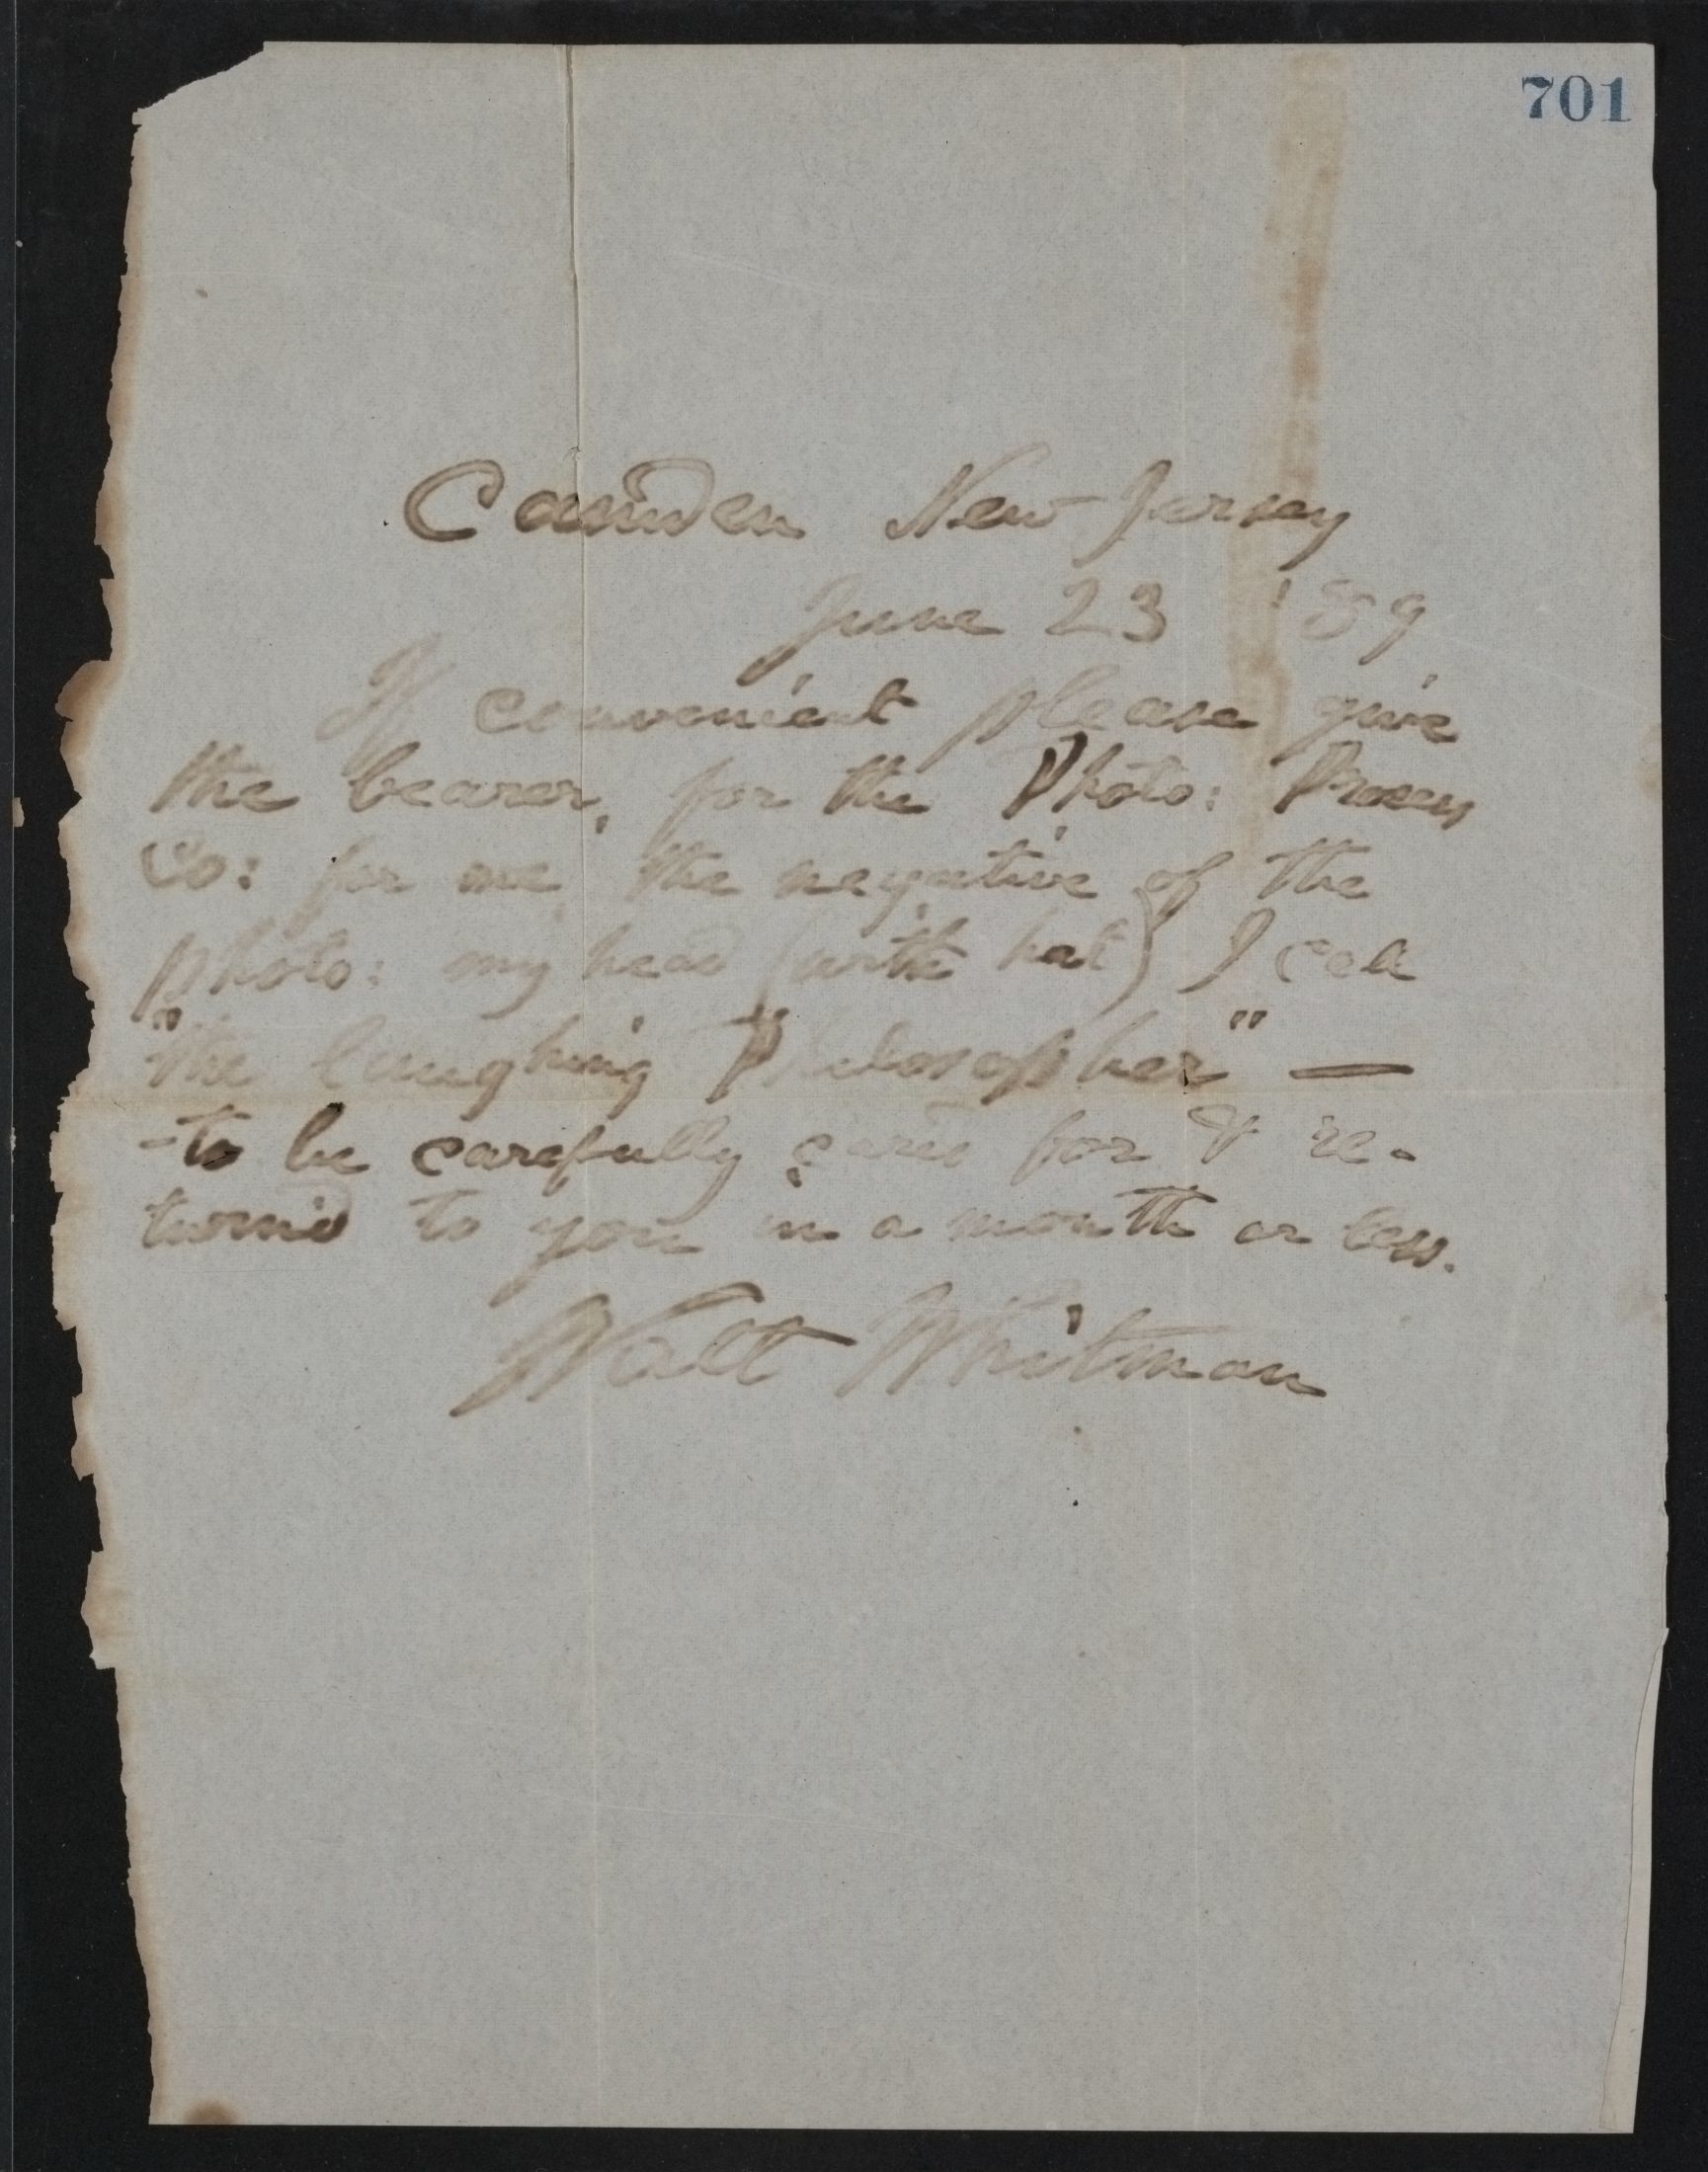 701
Camden New Jersey
June 23 '89
If convenient please give
the bearer, for the Photo: Process
Co: for me, the negative of the
photo: my head (with hat) I call
"the laughing Philosopher" —
- to be carefully cared for & re-
turn'd to you in a month or less.
Walt Whitman